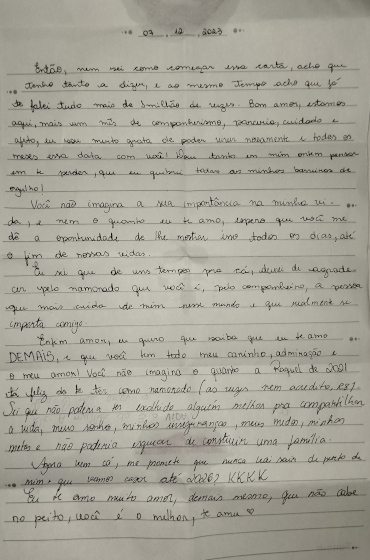 03 . 12 . 2023
Então, nem sei como começar essa carta, acho que
tenho tanto a dizer, e ao mesmo tempo acho que já
te falei tudo mais de 1 milhão de vezes. Bom amor, estamos
aqui, mais um mês de companheirismo, parceria, cuidado e
afeto, eu sou muito grata de poder viver novamente e todos os
meses essa data com você! Doeu tanto em mim ontem pensar
em te perder, que eu quebrei todas as minhas barreiras de
orgulho!
Você não imagina a sua importância na minha vi-
da, e nem o quanto eu te amo, espero que você me
dê a oportunidade de lhe mostrar isso todos os dias, até
o fim de nossas vidas.
Eu sei que de uns tempos pra cá, deixei de agrade-
cer pelo namorado que você é, pelo companheiro, a pessoa
que mais cuida de mim nesse mundo e que realmente se
importa comigo.
Enfim amor, eu quero que saiba que eu te amo
DEMAIS, e que você tem todo meu carinho, admiração e
o meu amor! Você não imagina o quanto a Raquel de
tá feliz de te ter como namorado (as vezes nem acredito,
Sei que não poderia ter escolhido alguém melhor pra compartilhar
a vida, meus sonhos, minhas inseguranças, meus medos, minhas
metas e não poderia esquecer de construir uma família.
Agora vem cá, me promete que nunca vai sair de perto de
mim e que vamos casar até 2026? KKKK
Eu te amo muito amor, demais mesmo, que não cabe
no peito, você é o melhor, te amo ♡